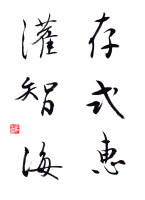 存式惠
灌智海